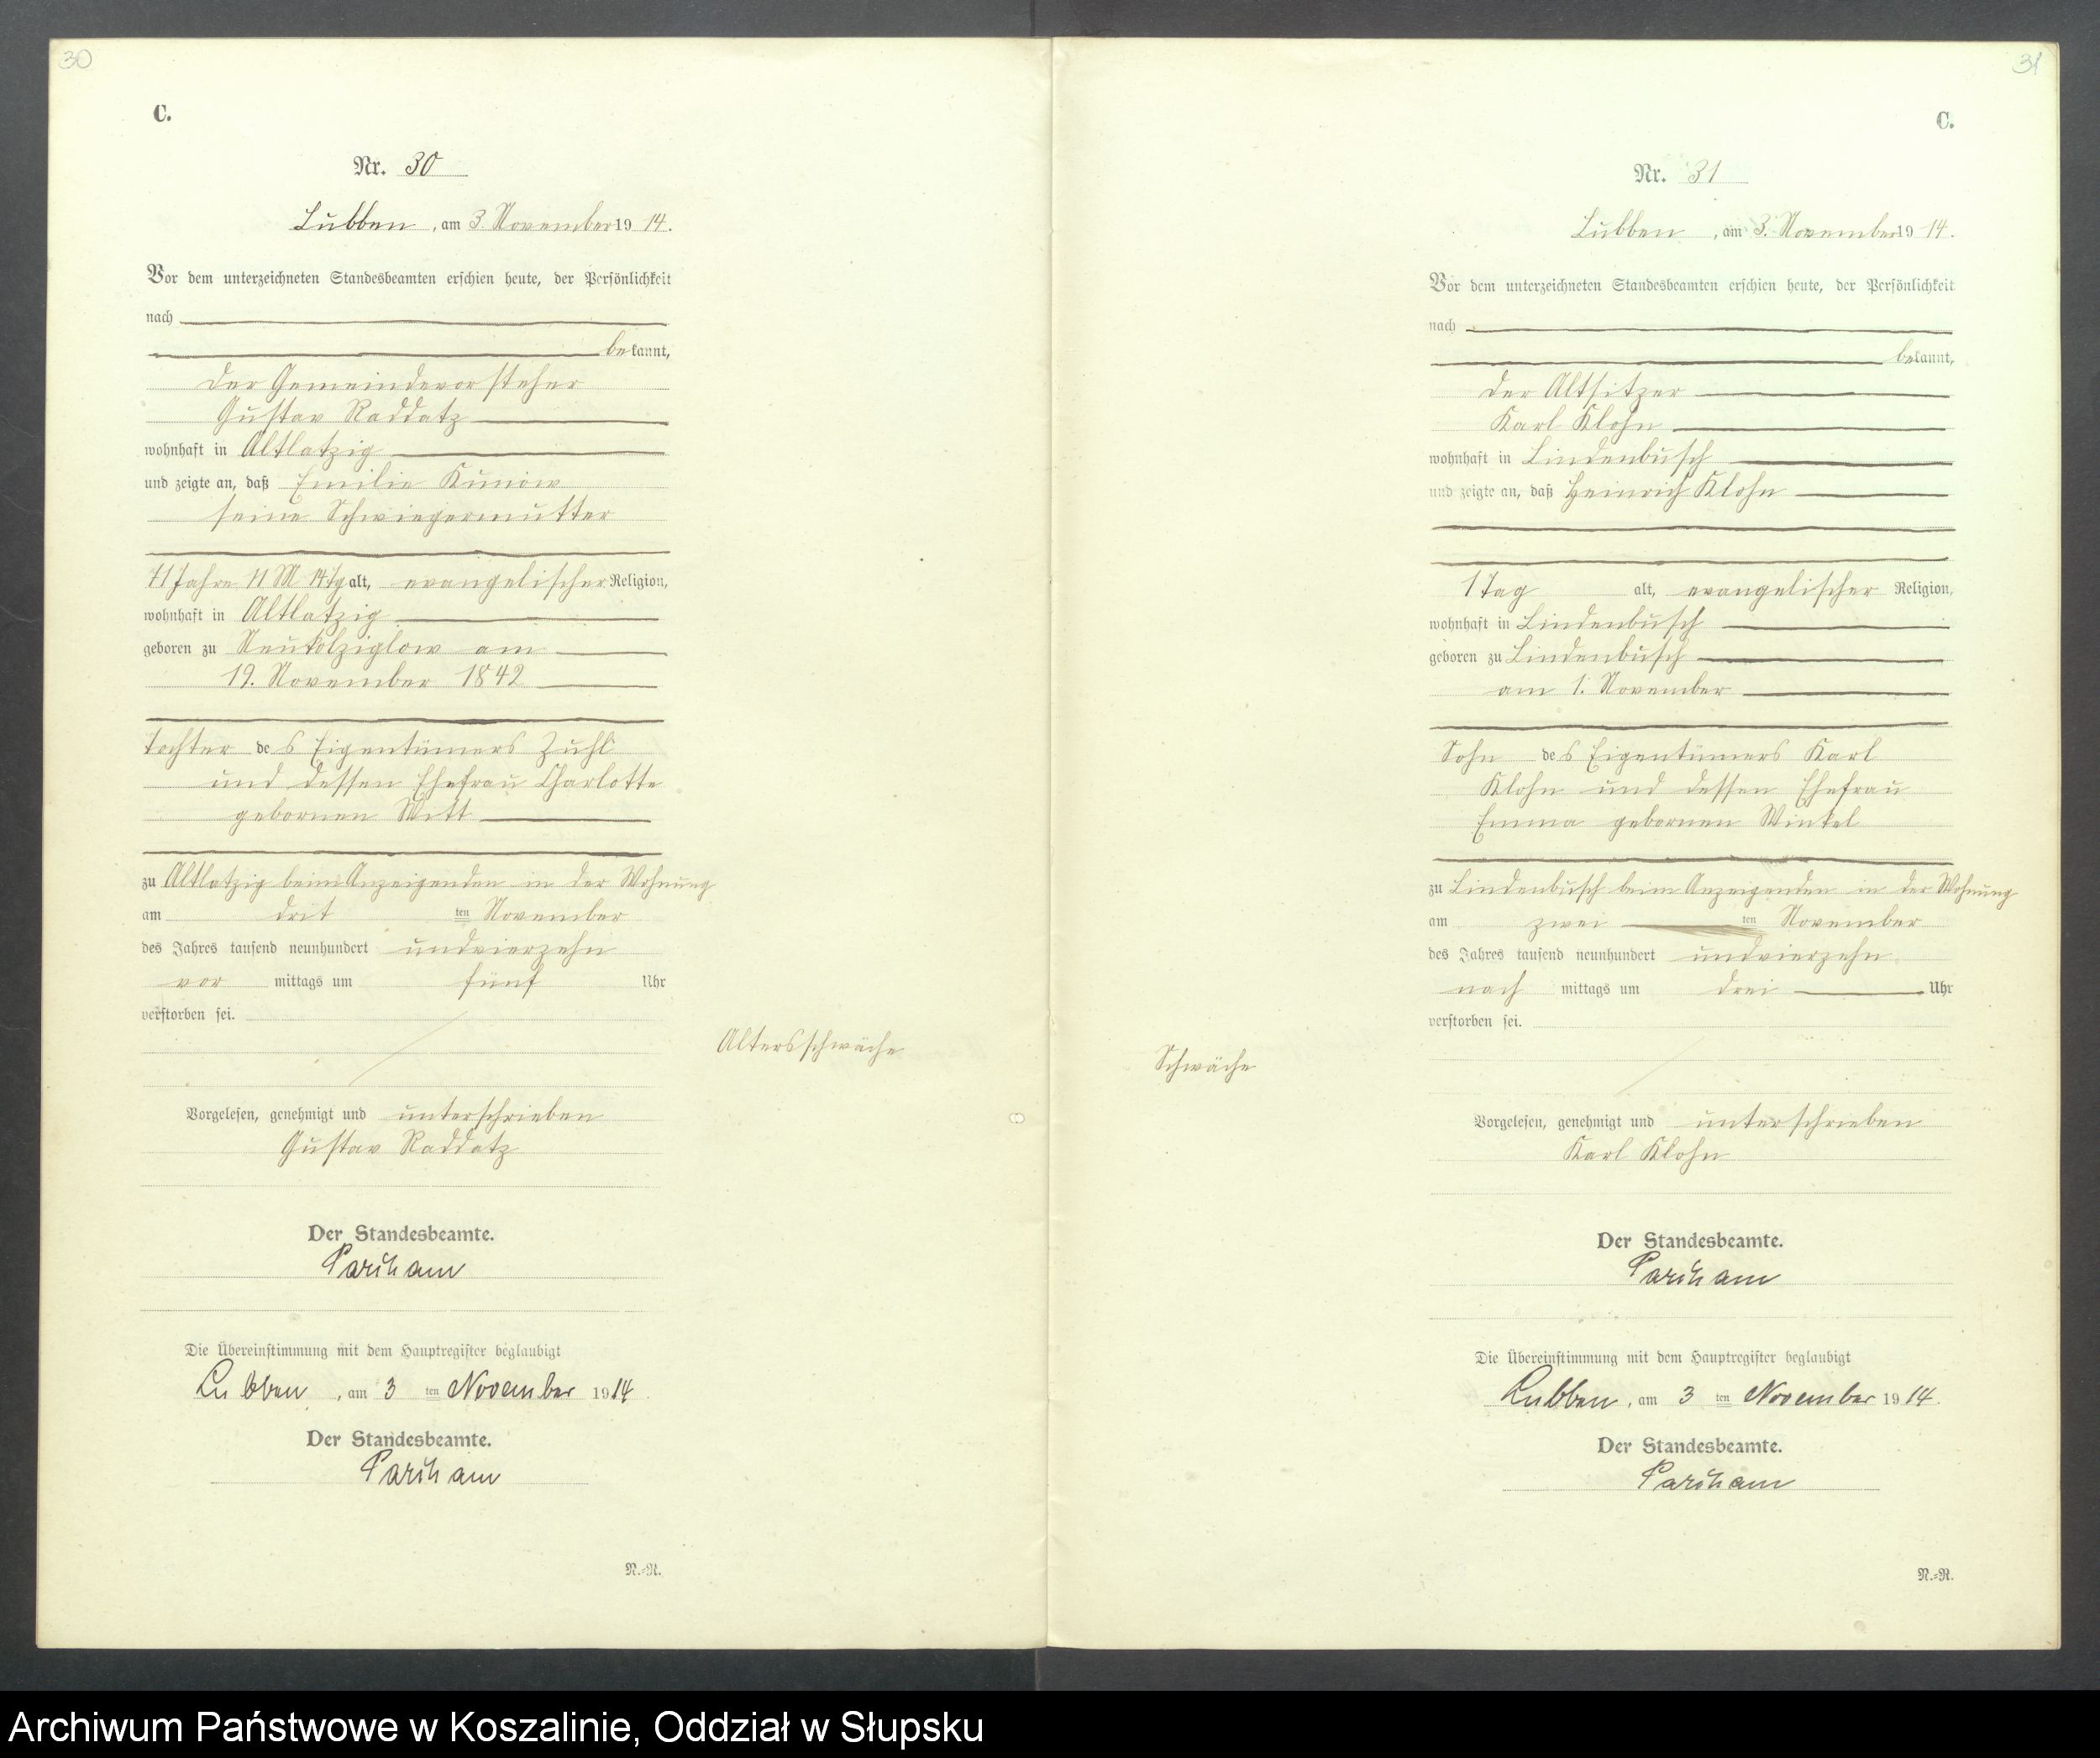 30
C.
Nr. 30
Lubben, am 3. November 1914.
Vor dem unterzeichneten Standesbeamten erschien heute, der Persönlichkeit
nach
bekannt,
der Gemeindevorsteher
Gustav Raddatz
wohnhaft in Altlatzig
und zeigte an, daß Emilie Kunow
seine Schwiegermutter
71 Jahre 11 M 14 Tg alt, evangelischer Religion,
wohnhaft in Altlatzig
geboren zu Neukolziglow am
19. November 1842
Tochter des Eigentümers Zuhl
und dessen Ehefrau Charlotte
gebornen Witt
zu Altlatzig beim Anzeigenden in der Wohnung
am dritten November
des Jahres tausend neunhundert undvierzehn
vormittags um fünf Uhr
verstorben sei.
Altersschwäche
Vorgelesen, genehmigt und unterschrieben
Gustav Raddatz
Der Standesbeamte.
Die Übereinstimmung mit dem Hauptregister beglaubigt
Lubben, am 3 ten November 1914
Der Standesbeamte.
N.-R.
31
C.
Nr. 31
Lubben, am 3. November 1914.
Vor dem unterzeichneten Standesbeamten erschien heute, der Persönlichkeit
nach
bekannt,
der Altsitzer
Karl Klohn
wohnhaft in Lindenbusch
und zeigte an, daß Heinrich Klohn
1 Tag alt, evangelischer Religion,
wohnhaft in Lindenbusch
geboren zu Lindenbusch
am 1. November
Sohn des Eigentümers Karl
Klohn und dessen Ehefrau
Emma gebornen Winkel
zu Lindenbusch beim Anzeigenden in der Wohnung
am zweiten November
des Jahres tausend neunhundert undvierzehn
nachmittags um drei Uhr
verstorben sei.
Schwäche
Vorgelesen, genehmigt und unterschrieben
Karl Klohn
Der Standesbeamte.
Die Übereinstimmung mit dem Hauptregister beglaubigt
Lubben, am 3 ten November 1914.
Der Standesbeamte.
N.-R.
Archiwum Państwowe w Koszalinie, Oddział w Słupsku